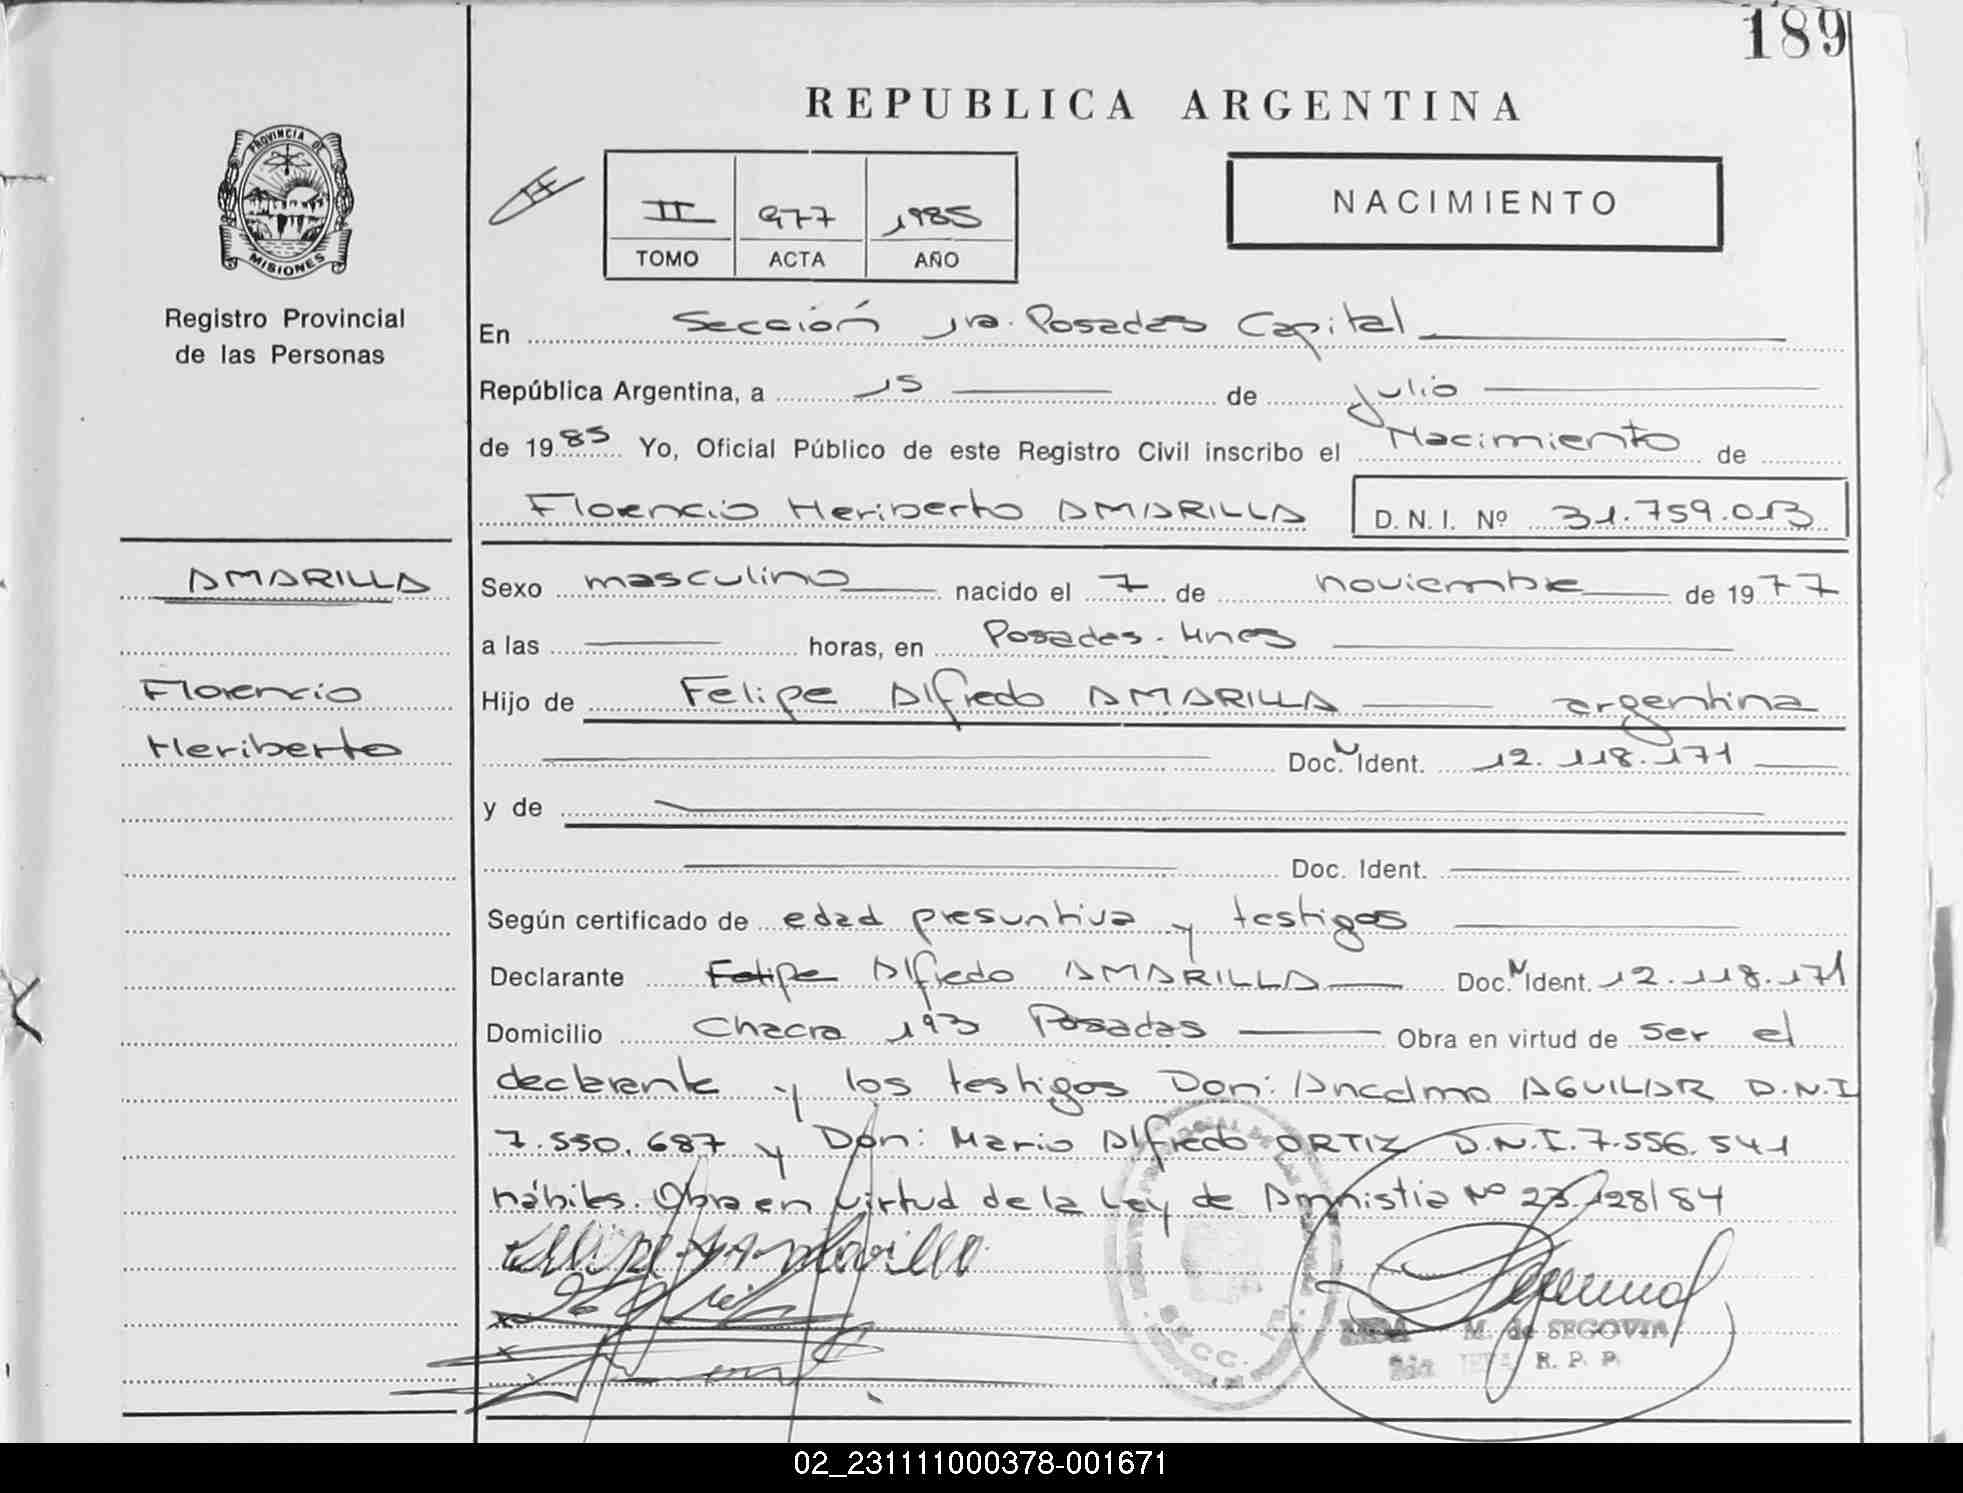 189
REPUBLICA ARGENTINA
PROVINCIA DE
MISIONES
Registro Provincial
de las Personas
II 977 1985
TOMO ACTA AÑO
NACIMIENTO
En Sección 1ra. Posadas Capital
República Argentina, a 15 de Julio
de 1985 Yo, Oficial Público de este Registro Civil inscribo el Nacimiento de
Florencio Heriberto AMARILLA D.N.I. Nº 31.759.013
AMARILLA
Florencio
Heriberto
Sexo masculino nacido el 7 de noviembre de 1977
a las horas, en Posadas. Mnes
Hijo de Felipe Alfredo AMARILLA argentina
Doc.N Ident. 12.118.171
y de
Doc. Ident.
Según certificado de edad presuntiva y testigos
Declarante Felipe Alfredo AMARILLA Doc.N Ident. 12.118.171
Domicilio Chacra 193 Posadas Obra en virtud de ser el
declarante y los testigos Don: Ancelmo AGUILAR D.N.I
7.550.687 y Don: Mario Alfredo ORTIZ D.N.I. 7.556.541
hábiles. Obra en virtud de la Ley de Amnistia Nº 23.128/84
M. de SEGOVIA
R. P. P.
SECC.
02_231111000378-001671